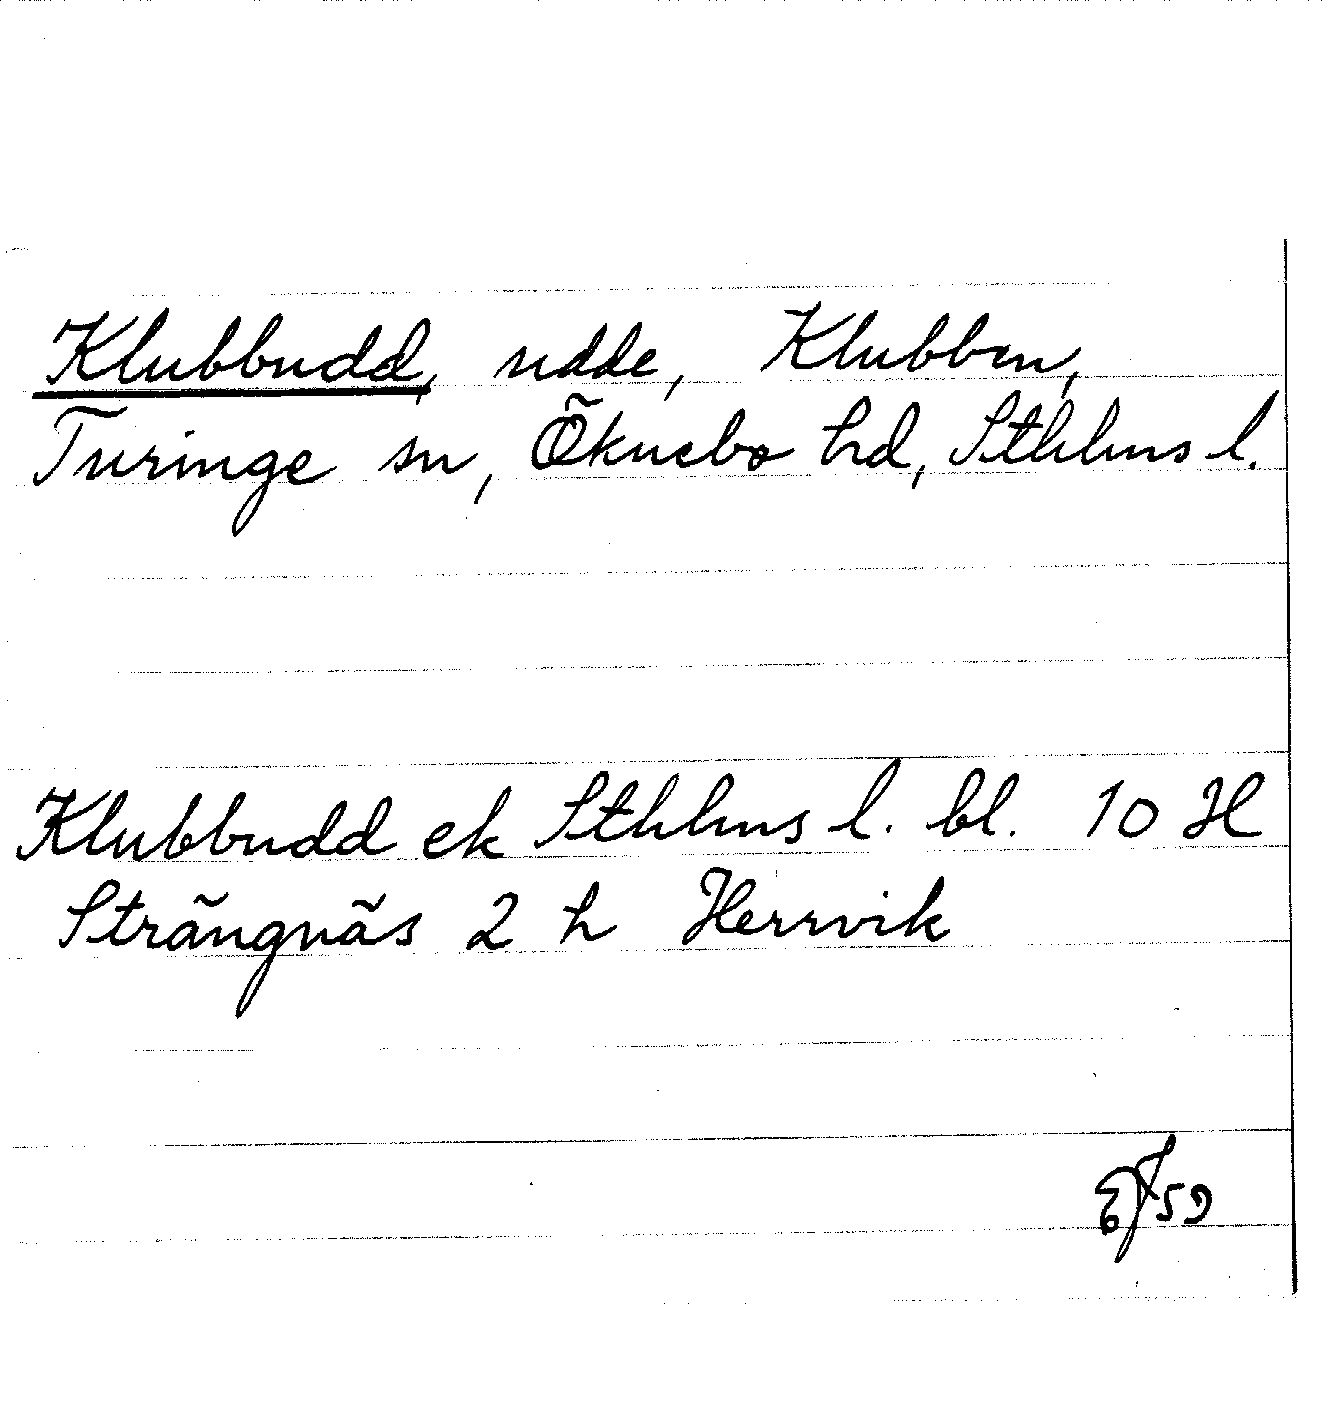 Klubbudd, udde, Klubben,
Turinge sn, Öknebo hd, Sthlms l.
Klubbudd ek Sthlms l. bl. 10 H
Strängnäs 2 h Herrvik
59